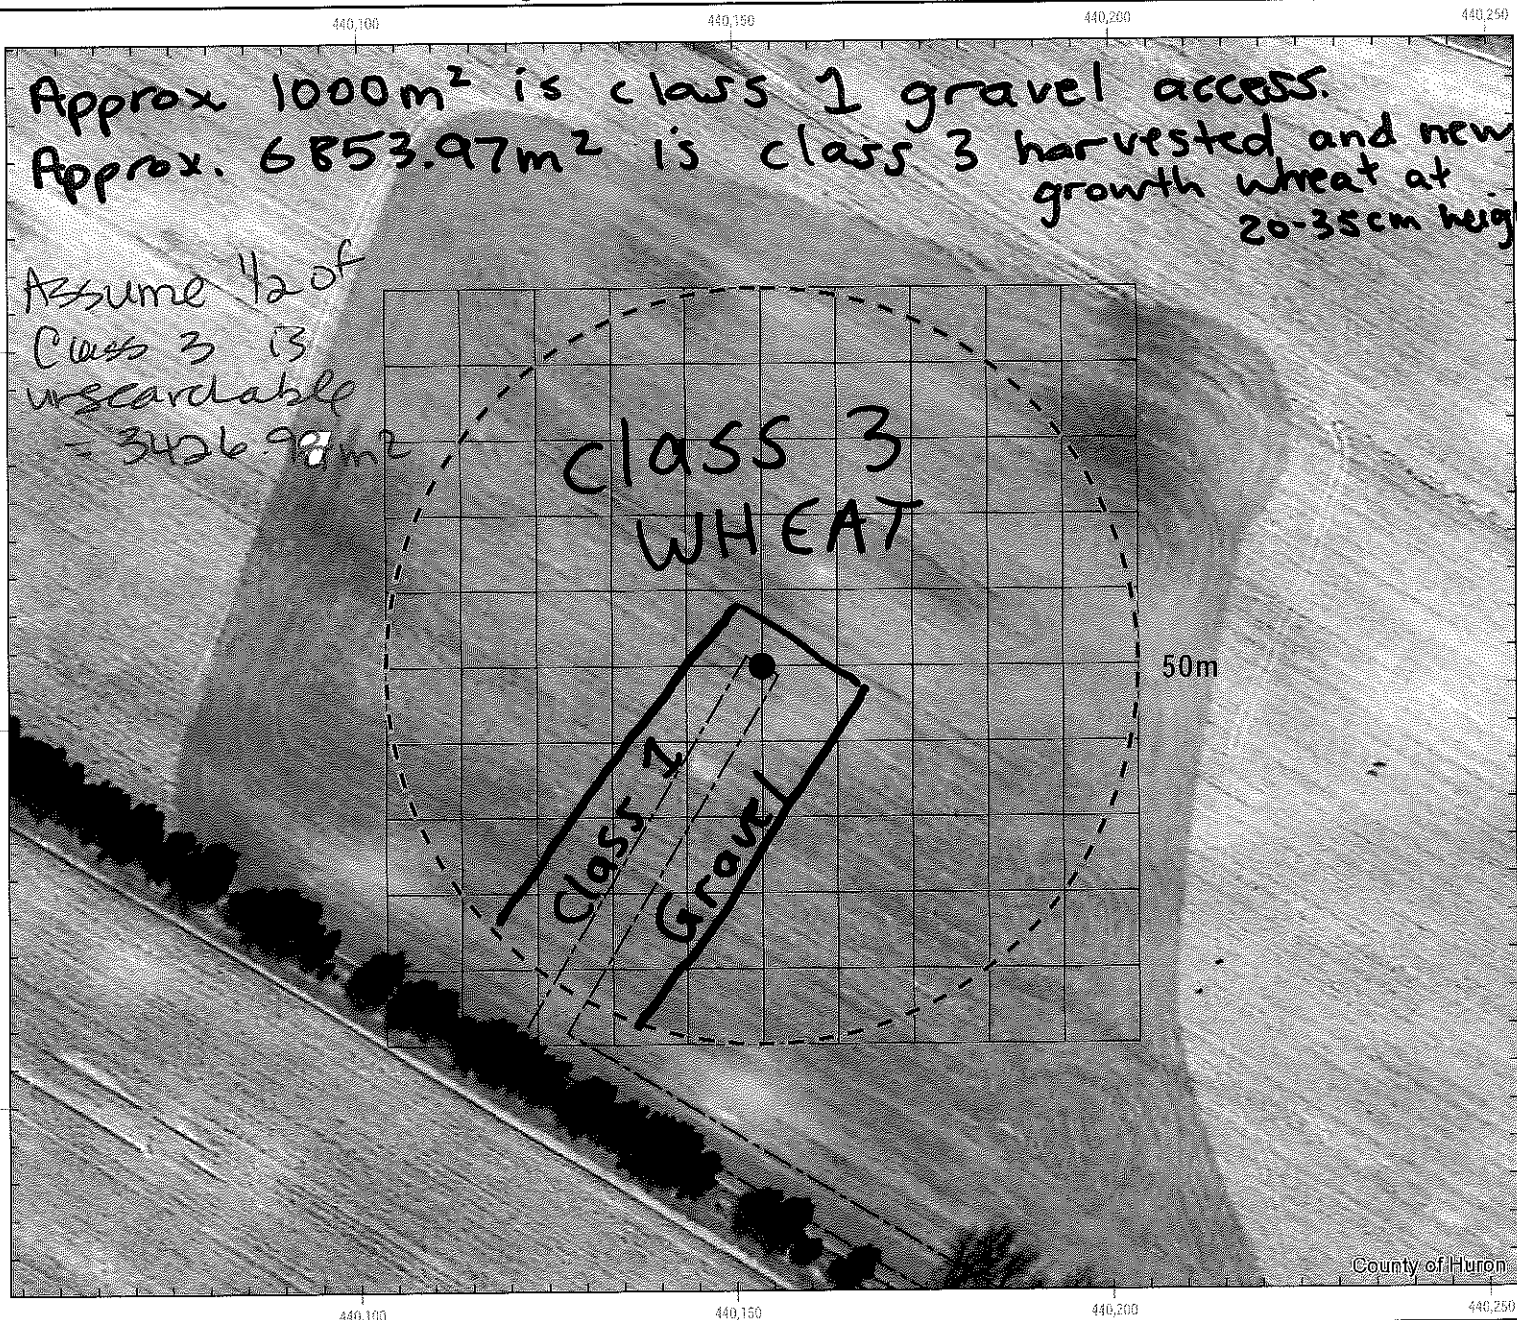 440,100 440,150 440,200 440,250
Approx 1000m² is class 1 gravel access.
Approx. 6853.97m² is class 3 harvested and new
growth wheat at
20-35cm heig
Assume 1/2 of
Class 3 is
unsearchable
= 3426.98m²
Class 3
WHEAT
50m
Class 1
Gravel
County of Huron
440,100 440,150 440,200 440,250